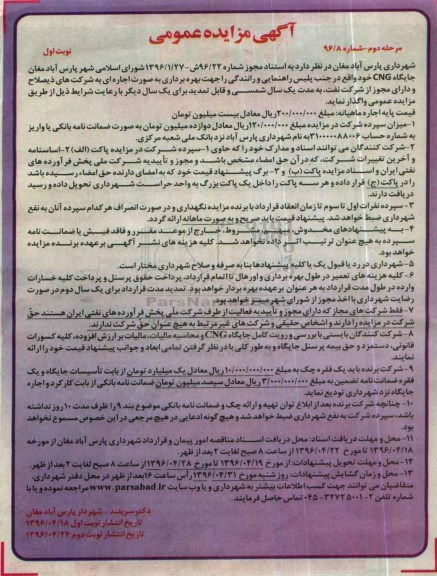 آگهی مزایده عمومی
مرحله دوم - شماره ۹۶/۸
نوبت اول
شهرداری پارس آباد مغان در نظر دارد به استناد مجوز شماره ۹۶/۲۲ش-۱۳۹۶/۱/۲۷ شورای اسلامی شهر پارس آباد مغان
جایگاه CNG خود واقع در جنب پلیس راهنمایی و رانندگی را جهت بهره برداری به صورت اجاره ای به شرکت های ذیصلاح
و دارای مجوز از شرکت نفت، به مدت یک سال شمسی و قابل تمدید برای یک سال دیگر با رعایت شرایط ذیل از طریق
مزایده عمومی واگذار نماید.
قیمت پایه اجاره ماهیانه: مبلغ ۲۰۰/۰۰۰/۰۰۰ ریال معادل بیست میلیون تومان
۱-میزان سپرده شرکت در مزایده مبلغ ۱۲۰/۰۰۰/۰۰۰ ریال معادل دوازده میلیون تومان به صورت ضمانت نامه بانکی یا واریز
به شماره حساب ۳۱۰۰۰۰۰۸۸۰۰۶ به نام شهرداری پارس آباد نزد بانک ملی شعبه مرکزی.
۲-شرکت کنندگان می توانند اسناد و مدارک خود را که حاوی ۱-سپرده شرکت در مزایده پاکت (الف) ۲-اساسنامه
و آخرین تغییرات شرکت، که در آن حق امضاء مشخص باشد و مجوز و تأییدیه شرکت ملی پخش فرآورده های
نفتی ایران و اسناد مزایده پاکت (ب) و ۳-برگ پیشنهاد قیمت خود که به امضای دارنده حق امضاء رسیده باشد
را در پاکت (ج) قرار داده و هر سه پاکت را داخل یک پاکت بزرگ به واحد حراست شهرداری تحویل داده و رسید
دریافت دارند.
۳-سپرده نفرات اول تا سوم تا زمان انعقاد قرارداد با برنده مزایده نگهداری و در صورت انصراف هر کدام سپرده آنان به نفع
شهرداری ضبط خواهد شد. پیشنهاد قیمت باید صریح و به صورت ماهانه ارائه گردد.
۴-به پیشنهادهای مخدوش، مبهم، مشروط، خارج از موعد مقرر و فاقد فیش یا ضمانت نامه
سپرده به هیچ عنوان ترتیب اثر داده نخواهد شد. کلیه هزینه های نشر آگهی بر عهده برنده مزایده
خواهد بود.
۵-شهرداری در رد یا قبول یک یا کلیه پیشنهادها بنا به صرفه و صلاح شهرداری مختار است.
۶-کلیه هزینه های تعمیر در طول بهره برداری و اورهال تا اتمام قرارداد، پرداخت حقوق پرسنل و پرداخت کلیه خسارات
وارده در طول مدت قرارداد به هر عنوان بر عهده بهره بردار خواهد بود. تمدید مدت قرارداد برای یک سال دوم در صورت
رضایت شهرداری با اخذ مجوز از شورای شهر میسر خواهد بود.
۷-فقط شرکت های مجاز که دارای مجوز و تأییدیه فعالیت از طرف شرکت ملی پخش فرآورده های نفتی ایران هستند حق
شرکت در مزایده را دارند و اشخاص حقیقی و شرکت های غیر مرتبط به هیچ عنوان حق شرکت ندارند.
۸-شرکت کنندگان بایستی با بررسی و رویت کامل جایگاه CNG و محاسبه مالیات، مالیات بر ارزش افزوده، کلیه کسورات
قانونی، دستمزد و حق بیمه پرسنل جایگاه و به طور کلی با در نظر گرفتن تمامی ابعاد و جوانب پیشنهاد قیمت خود را ارائه
نمایند.
۹-شرکت برنده باید یک فقره چک به مبلغ ۱۰/۰۰۰/۰۰۰/۰۰۰ ریال معادل یک میلیارد تومان از بابت تأسیسات جایگاه و یک
فقره ضمانت نامه تضمین به مبلغ ۳/۰۰۰/۰۰۰/۰۰۰ ریال معادل سیصد میلیون تومان ضمانت نامه بانکی از بابت کارکرد و اجاره
جایگاه نزد شهرداری تودیع نماید.
۱۰-چنانچه شرکت برنده بعد از ابلاغ توان تهیه و ارائه چک و ضمانت نامه بانکی موضوع بند ۹ را ظرف مدت ۱۰ روز نداشته
باشد، سپرده شرکت به نفع شهرداری ضبط خواهد شد و هیچ گونه ادعایی در هیچ مرجعی در این خصوص مسموع نخواهد
بود.
۱۱-محل و مهلت دریافت اسناد: محل دریافت اسناد مناقصه امور پیمان و قرارداد شهرداری پارس آباد مغان از مورخه
۱۳۹۶/۰۴/۱۸ تا مورخ ۱۳۹۶/۰۴/۲۲ از ساعت ۸ صبح لغایت ۲ بعد از ظهر.
۱۲-محل و مهلت تحویل پیشنهادات: از مورخ ۱۳۹۶/۰۴/۱۹ تا مورخ ۱۳۹۶/۰۴/۲۸ از ساعت ۸ صبح لغایت ۲ بعد از ظهر.
۱۳-محل و زمان گشایش پیشنهادات: روز شنبه مورخ ۱۳۹۶/۰۴/۳۱ رأس ساعت ۱۶ بعد از ظهر در محل دفتر شهرداری.
متقاضیان می توانند جهت کسب اطلاعات بیشتر به شهرداری و یا وب سایت www.parsabad.ir مراجعه نموده و یا با
شماره تلفن ۲-۳۲۷۲۵۰۰۱-۰۴۵ تماس حاصل فرمایند.
دکتر سربلند - شهردار پارس آباد مغان
تاریخ انتشار نوبت اول ۱۳۹۶/۰۴/۱۸
تاریخ انتشار نوبت دوم ۱۳۹۶/۰۴/۲۴